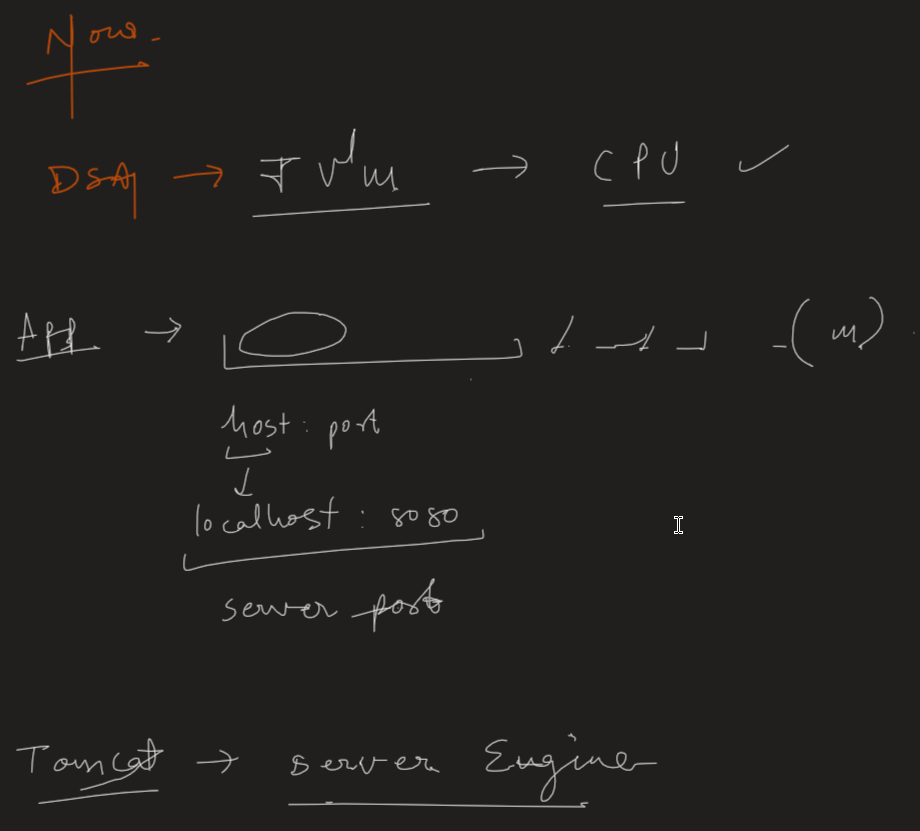 Now.
DSA → JVM → CPU ✓
App → (m)
host : port
↓
localhost : 8080
server port
Tomcat → server Engine